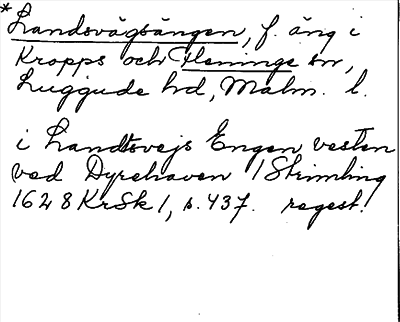 *Landsvägsängen, f. äng i
Kropps och Fleninge snr,
Luggude hd, Malm. l.
i Landtsvejs Engen vesten
ved Dyrehaven /Skrimling
1628 KrSk 1, s. 437. regest.